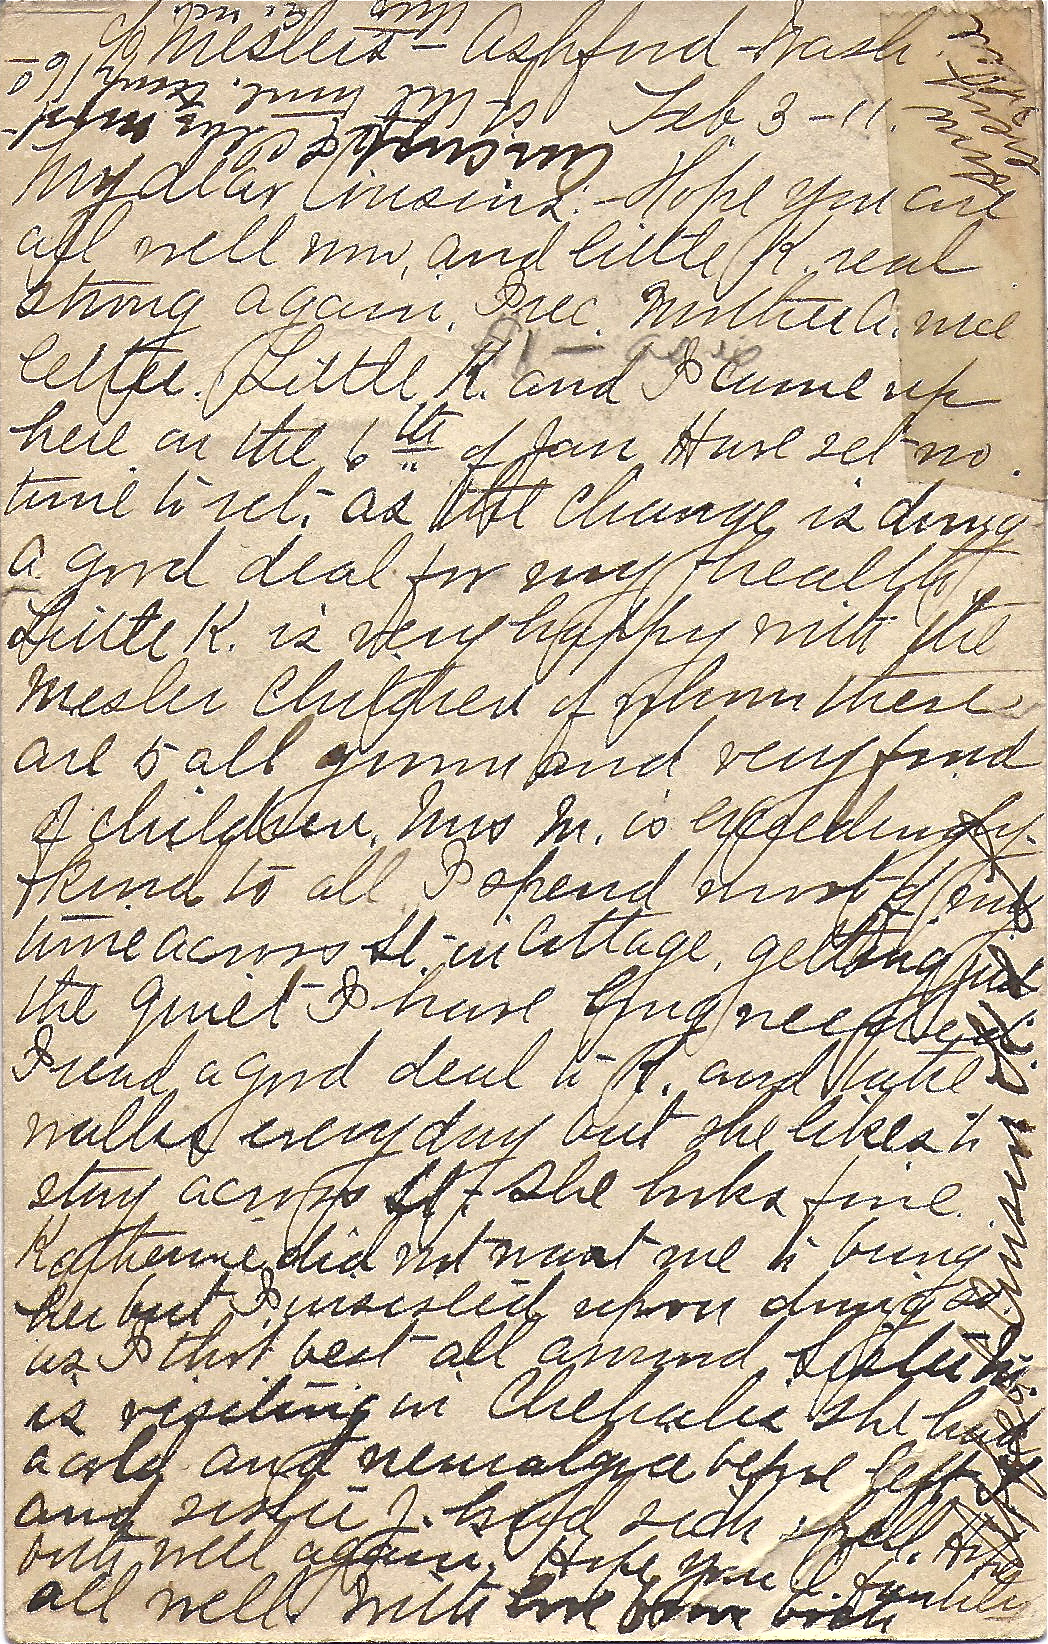 Meslers - Ashford - Wash.
Feb 3 - 11.
My dear Cousins: - Hope you are
all well now, and little K. real
strong again. I rec. Mother A. nice
letter. Little K. and I came up
here on the 6th of Jan Have set no
time to ret. as the change is doing
a good deal for my health.
Little K. is very happy with the
Mesler Children of whom there
are 5 all grown and very fond
of children. Mrs M. is exceedingly
kind to all I spend most of my
time across st. in Cottage, getting just
the quiet I have long needed.
I read a good deal to K. and take
walks every day but she likes to
stay across st. She looks fine.
Katherine did not want me to bring
her but I insisted upon doing so
as I tho't best all around Sister M.
is visiting in Chehalis she had
a cold and neuralgia before left
and sister J. had sick spell. Hope
both well again. Hope you & family
all well. With love from both